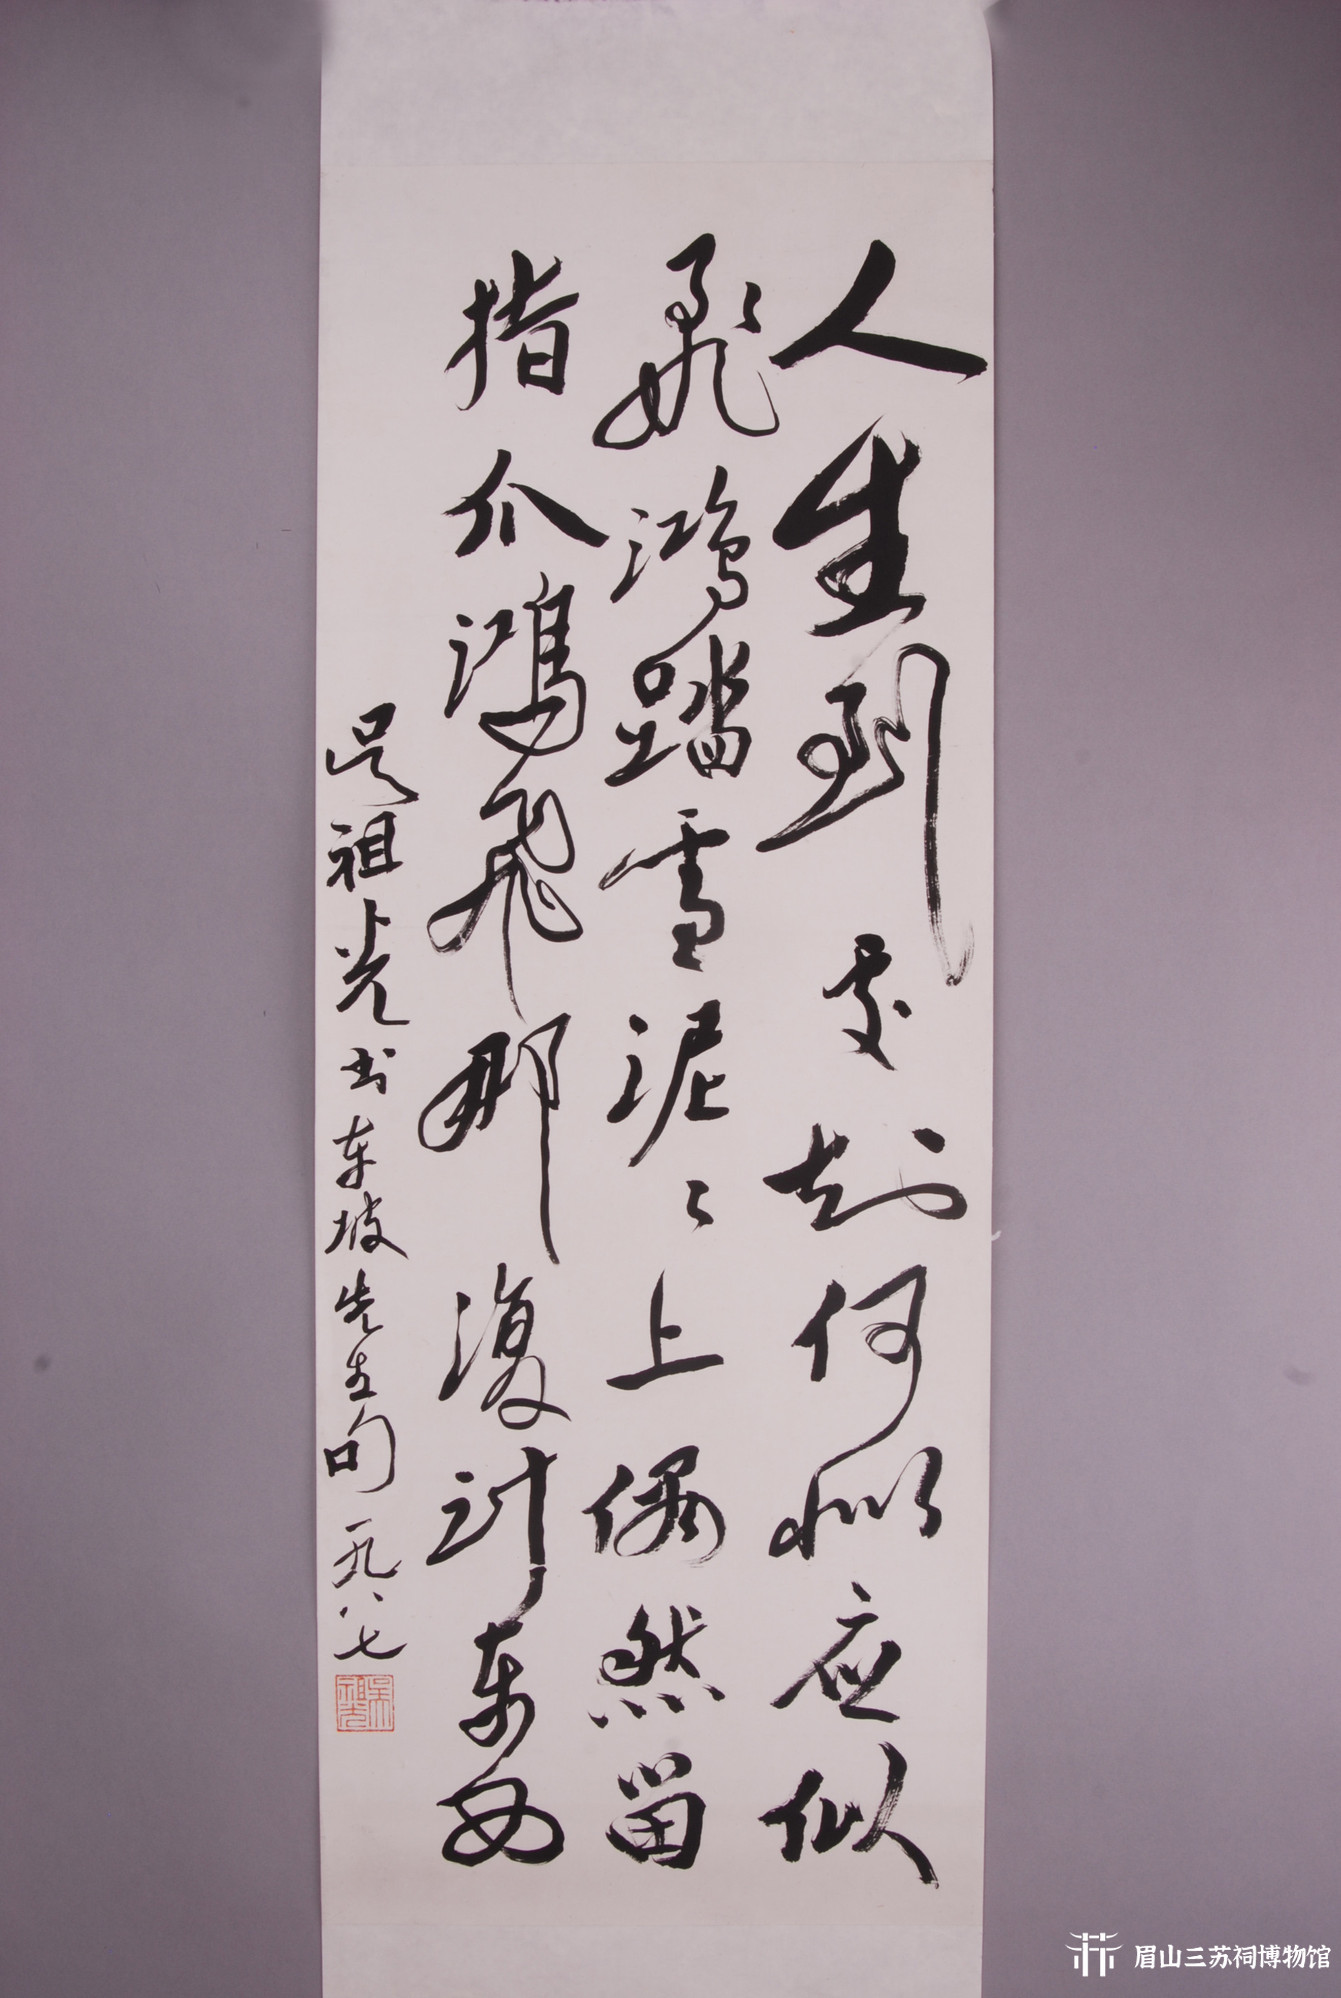 人生到处知何似应似
飛鴻踏雪泥々上偶然留
指爪鴻飛那復计东西
吴祖光书东坡先生句 一九八七
吴祖光
眉山三苏祠博物馆